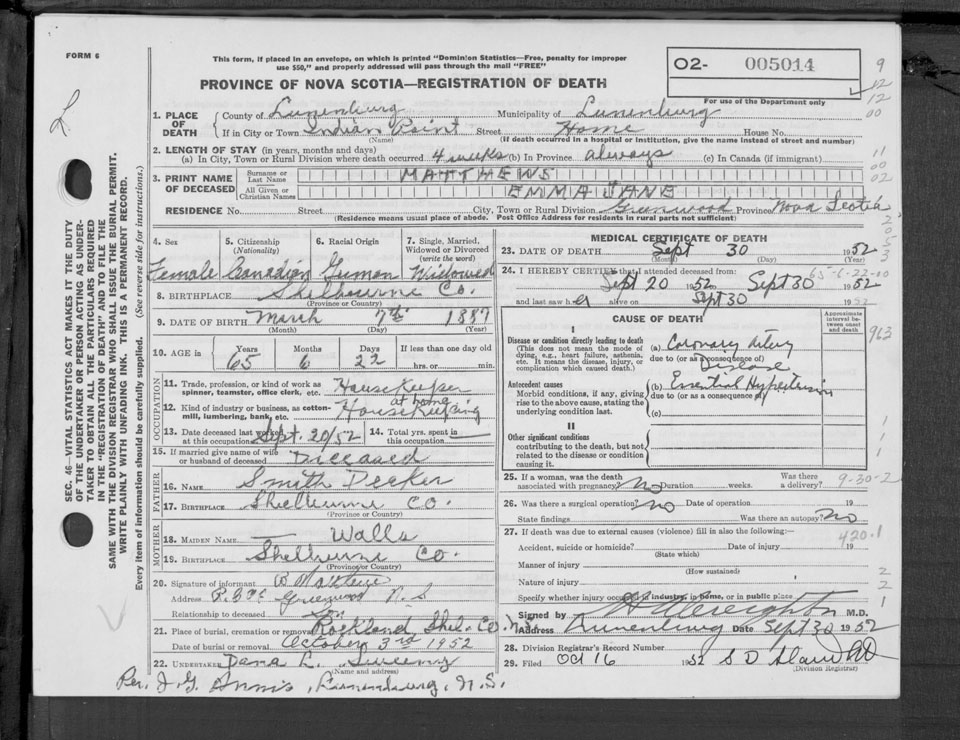 FORM 6
This form, if placed in an envelope, on which is printed "Dominion Statistics—Free, penalty for improper
use $50," and properly addressed will pass through the mail "FREE"
PROVINCE OF NOVA SCOTIA—REGISTRATION OF DEATH
O2- 005014
For use of the Department only
9
12
12
00
1. PLACE OF DEATH County of Lunenburg Municipality of Lunenburg
If in City or Town Indian Point Street Home House No.
(Name) (If death occurred in a hospital or institution, give the name instead of street and number)
2. LENGTH OF STAY (in years, months and days)
(a) In City, Town or Rural Division where death occurred 4 weeks (b) In Province always (c) In Canada (if immigrant)
11
00
02
3. PRINT NAME OF DECEASED Surname or Last Name MATTHEWS
All Given or Christian Names EMMA JANE
RESIDENCE No. Street City, Town or Rural Division Greenwood Province Nova Scotia
(Residence means usual place of abode. Post Office Address for residents in rural parts not sufficient)
SEC. 46—VITAL STATISTICS ACT MAKES IT THE DUTY
OF THE UNDERTAKER OR PERSON ACTING AS UNDER-
TAKER TO OBTAIN ALL THE PARTICULARS REQUIRED
IN THE "REGISTRATION OF DEATH" AND TO FILE THE
SAME WITH THE DIVISION REGISTRAR WHO SHALL ISSUE THE BURIAL PERMIT.
WRITE PLAINLY WITH UNFADING INK. THIS IS A PERMANENT RECORD.
Every item of information should be carefully supplied. (See reverse side for instructions.)
4. Sex 5. Citizenship (Nationality) 6. Racial Origin 7. Single, Married, Widowed or Divorced (write the word)
Female Canadian German Widowed
8. BIRTHPLACE Shelbourne Co.
(Province or Country)
9. DATE OF BIRTH March 7th 1887
(Month) (Day) (Year)
10. AGE in Years Months Days If less than one day old
65 6 22 hrs. or min.
OCCUPATION
11. Trade, profession, or kind of work as spinner, teamster, office clerk, etc. HouseKeeper
at home
12. Kind of industry or business, as cotton-mill, lumbering, bank, etc. HouseKeeping
13. Date deceased last worked at this occupation Sept. 20/52 14. Total yrs. spent in this occupation
15. If married give name of wife or husband of deceased Diceased
FATHER
16. NAME Smith Decker
17. BIRTHPLACE Shelburne Co.
(Province or Country)
MOTHER
18. MAIDEN NAME — Walls
19. BIRTHPLACE Shelburne Co.
(Province or Country)
20. Signature of informant
Address Greenwood N.S
Relationship to deceased Son
21. Place of burial, cremation or removal Rockland Shel. Co. N.S.
Date of burial or removal October 3rd 1952
22. UNDERTAKER Dana L. Sweeny
(Name and address)
Per. J. G. Annis, Lunenburg, N.S.
MEDICAL CERTIFICATE OF DEATH
23. DATE OF DEATH Sept 30 1952
(Month) (Day) (Year)
24. I HEREBY CERTIFY that I attended deceased from:
65-6-22-00
Sept 20 1952 Sept 30 1952
and last saw her alive on Sept 30 1952
CAUSE OF DEATH
Approximate interval between onset and death
963
I
Disease or condition directly leading to death
(This does not mean the mode of dying, e.g., heart failure, asthenia, etc. It means the disease, injury, or complication which caused death.)
(a) Coronary artery
due to (or as a consequence of)
Disease
Antecedent causes
Morbid conditions, if any, giving rise to the above cause, stating the underlying condition last.
(b) Essential Hypertension
due to (or as a consequence of)
(c)
II
Other significant conditions
contributing to the death, but not related to the disease or condition causing it.
25. If a woman, was the death associated with pregnancy? No Duration weeks. Was there a delivery?
9-30-2
26. Was there a surgical operation? no Date of operation 19
State findings Was there an autopsy? no
27. If death was due to external causes (violence) fill in also the following:—
420.1
Accident, suicide or homicide? Date of injury 19
(State which)
Manner of injury
(How sustained)
Nature of injury
Specify whether injury occurred in industry, in home, or in public place
Signed by Creighton M.D.
Address Lunenburg Date Sept 30 1952
28. Division Registrar's Record Number
29. Filed Oct 16 1952 S D
(Division Registrar)